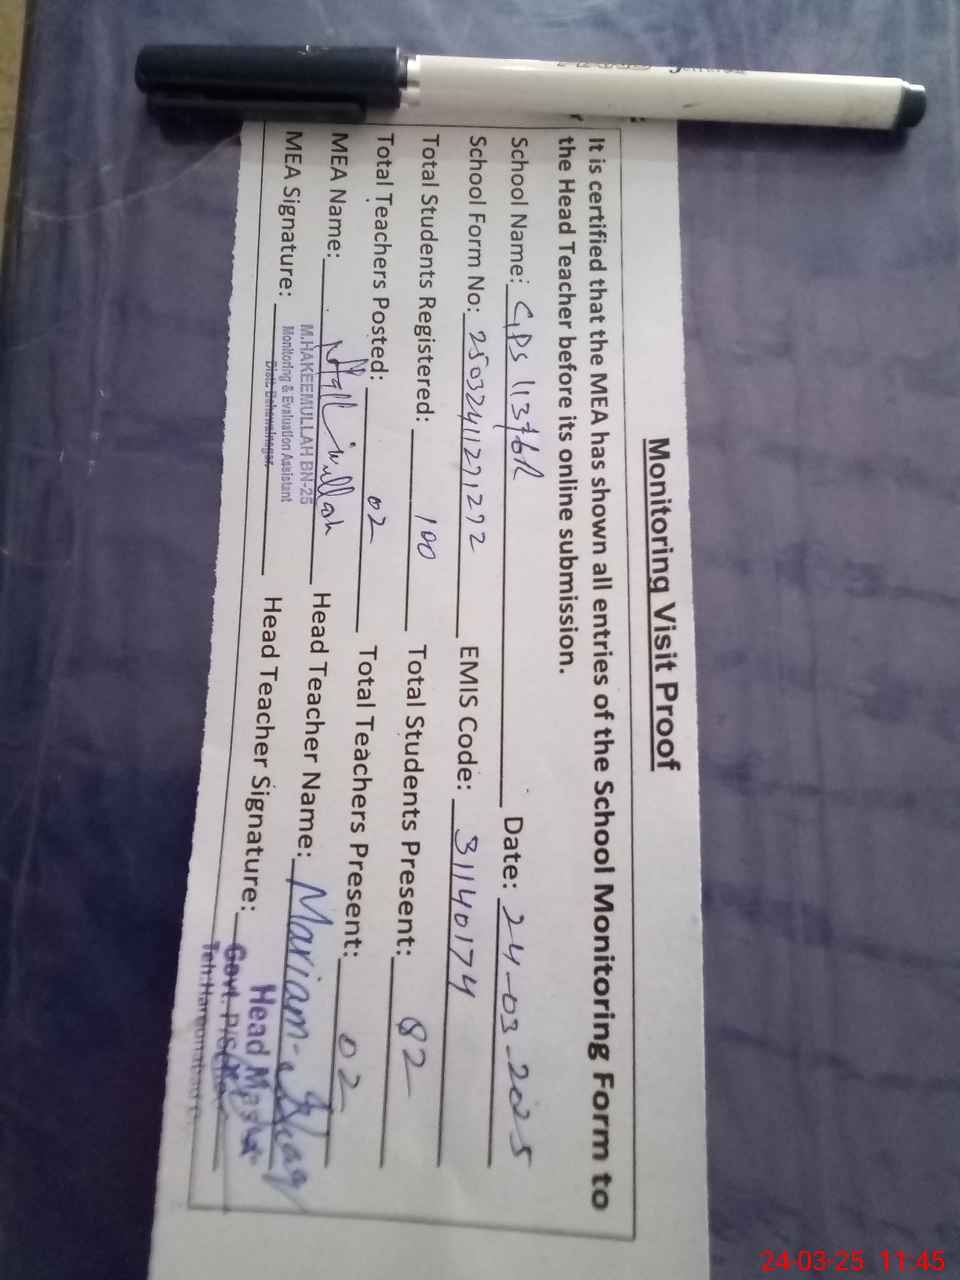 Monitoring Visit Proof
It is certified that the MEA has shown all entries of the School Monitoring Form to
the Head Teacher before its online submission.
School Name: GPS 113/6R Date: 24-03-2025
School Form No: EMIS Code: 31140174
Total Students Registered: 100 Total Students Present: 82
Total Teachers Posted: 02 Total Teachers Present: 02
MEA Name: Head Teacher Name: Mariam
M.HAKEEMULLAH BN-25
MEA Signature: Monitoring & Evaluation Assistant Head Teacher Signature:
Distt. Bahawalnagar
Head
Govt.
24-03-25 11:45